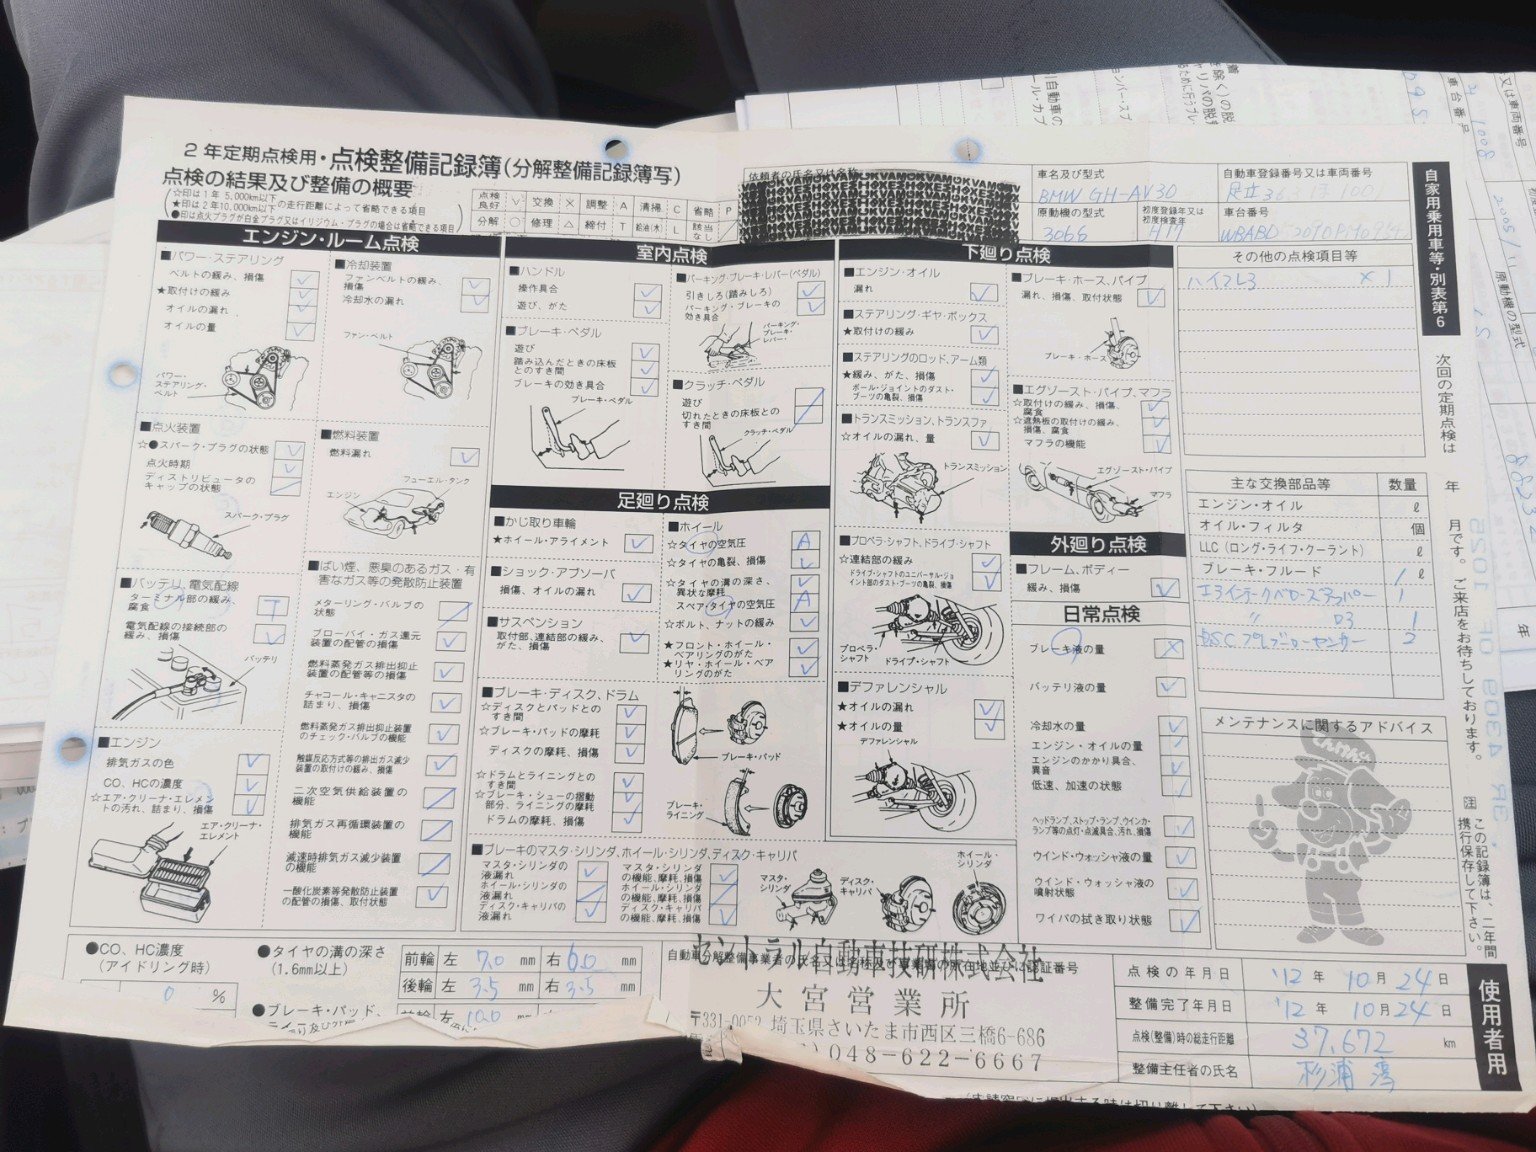 2年定期点検用・点検整備記録簿(分解整備記録簿写)
点検の結果及び整備の概要
☆印は1年 5,000km以下
★印は2年10,000km以下の走行距離によって省略できる項目
●印は点火プラグが白金プラグ又はイリジウム・プラグの場合は省略できる項目
点検良好 レ 交換 × 調整 A 清掃 C 省略 P
分解 ○ 修理 △ 締付 T 給油(水) L 該当なし
依頼者の氏名又は名称
車名及び型式
BMW GH-AV30
自動車登録番号又は車両番号
原動機の型式
306S
初度登録年又は初度検査年
H17
車台番号
自家用乗用車等・別表第6
エンジン・ルーム点検
■パワー・ステアリング
ベルトの緩み、損傷
★取付けの緩み
オイルの漏れ
オイルの量
パワー・ステアリング・ベルト
■冷却装置
ファンベルトの緩み、損傷
冷却水の漏れ
ファン・ベルト
■点火装置
☆●スパーク・プラグの状態
点火時期
ディストリビュータのキャップの状態
スパーク・プラグ
■燃料装置
燃料漏れ
エンジン
フューエル・タンク
■バッテリ、電気配線
ターミナル部の緩み、腐食 T
電気配線の接続部の緩み、損傷
バッテリ
■ばい煙、悪臭のあるガス・有害なガス等の発散防止装置
メターリング・バルブの状態
ブローバイ・ガス還元装置の配管の損傷
燃料蒸発ガス排出抑止装置の配管等の損傷
チャコール・キャニスタの詰まり、損傷
燃料蒸発ガス排出抑止装置のチェック・バルブの機能
触媒反応方式等の排出ガス減少装置の取付けの緩み、損傷
二次空気供給装置の機能
排気ガス再循環装置の機能
減速時排気ガス減少装置の機能
一酸化炭素等発散防止装置の配管の損傷、取付状態
■エンジン
排気ガスの色
CO、HCの濃度
☆エア・クリーナ・エレメントの汚れ、詰まり、損傷
エア・クリーナ・エレメント
室内点検
■ハンドル
操作具合
遊び、がた
■ブレーキ・ペダル
遊び
踏み込んだときの床板とのすき間
ブレーキの効き具合
ブレーキ・ペダル
■パーキング・ブレーキ・レバー(ペダル)
引きしろ(踏みしろ)
パーキング・ブレーキの効き具合
パーキング・ブレーキ・レバー
■クラッチ・ペダル
遊び
切れたときの床板とのすき間
クラッチ・ペダル
足廻り点検
■かじ取り車輪
★ホイール・アライメント
■ショック・アブソーバ
損傷、オイルの漏れ
■サスペンション
取付部、連結部の緩み、がた、損傷
■ホイール
☆タイヤの空気圧 A
☆タイヤの亀裂、損傷
☆タイヤの溝の深さ、異状な摩耗
スペア・タイヤの空気圧 A
☆ボルト、ナットの緩み
★フロント・ホイール・ベアリングのがた
★リヤ・ホイール・ベアリングのがた
■ブレーキ・ディスク、ドラム
☆ディスクとパッドとのすき間
☆ブレーキ・パッドの摩耗
ディスクの摩耗、損傷
☆ドラムとライニングとのすき間
☆ブレーキ・シューの摺動部分、ライニングの摩耗
ドラムの摩耗、損傷
ブレーキ・パッド
ブレーキ・ライニング
■ブレーキのマスタ・シリンダ、ホイール・シリンダ、ディスク・キャリパ
マスタ・シリンダの液漏れ
ホイール・シリンダの液漏れ
ディスク・キャリパの液漏れ
マスタ・シリンダの機能、摩耗、損傷
ホイール・シリンダの機能、摩耗、損傷
ディスク・キャリパの機能、摩耗、損傷
マスタ・シリンダ
ディスク・キャリパ
ホイール・シリンダ
下廻り点検
■エンジン・オイル
漏れ
■ステアリング・ギヤ・ボックス
★取付けの緩み
■ステアリングのロッド、アーム類
★緩み、がた、損傷
ボール・ジョイントのダスト・ブーツの亀裂、損傷
■トランスミッション、トランスファ
☆オイルの漏れ、量
トランスミッション
■プロペラ・シャフト、ドライブ・シャフト
☆連結部の緩み
ドライブ・シャフトのユニバーサル・ジョイント部のダスト・ブーツの亀裂、損傷
プロペラ・シャフト
ドライブ・シャフト
■デファレンシャル
★オイルの漏れ
★オイルの量
デファレンシャル
■ブレーキ・ホース、パイプ
漏れ、損傷、取付状態
ブレーキ・ホース
■エグゾースト・パイプ、マフラ
☆取付けの緩み、損傷、腐食
☆遮熱板の取付けの緩み、損傷、腐食
マフラの機能
エグゾースト・パイプ
マフラ
外廻り点検
■フレーム、ボディー
緩み、損傷
日常点検
ブレーキ液の量 ×
バッテリ液の量
冷却水の量
エンジン・オイルの量
エンジンのかかり具合、異音
低速、加速の状態
ヘッドランプ、ストップ・ランプ、ウインカ・ランプ等の点灯・点滅具合、汚れ、損傷
ウインド・ウォッシャ液の量
ウインド・ウォッシャ液の噴射状態
ワイパの拭き取り状態
その他の点検項目等
主な交換部品等 数量
エンジン・オイル ℓ
オイル・フィルタ 個
LLC(ロング・ライフ・クーラント) ℓ
ブレーキ・フルード 1 ℓ
メンテナンスに関するアドバイス
次回の定期点検は 年 月です。ご来店をお待ちしております。
注 この記録簿は、二年間携行保存して下さい。
●CO、HC濃度
(アイドリング時)
0 %
●タイヤの溝の深さ
(1.6mm以上)
前輪 左 7.0 mm 右 6.0 mm
後輪 左 3.5 mm 右 3.5 mm
●ブレーキ・パッド、
左 10.0
セントラル自動車技研株式会社
大宮営業所
〒331-0052 埼玉県さいたま市西区三橋6-686
048-622-6667
点検の年月日 '12年 10月 24日
整備完了年月日 '12年 10月 24日
点検(整備)時の総走行距離 37,672 km
整備主任者の氏名
使用者用